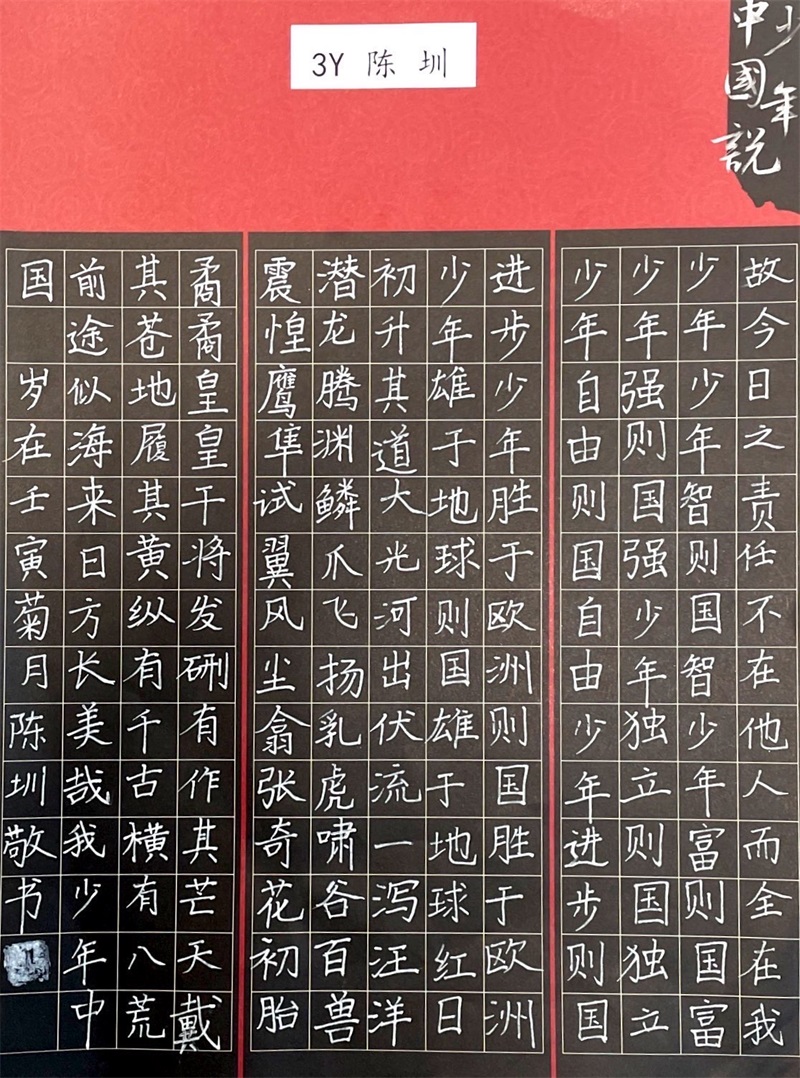 3Y 陈圳
少年
中國説
故今日之责任不在他人而全在我
少年少年智则国智少年富则国富
少年强则国强少年独立则国独立
少年自由则国自由少年进步则国
进步少年胜于欧洲则国胜于欧洲
少年雄于地球则国雄于地球红日
初升其道大光河出伏流一泻汪洋
潜龙腾渊鳞爪飞扬乳虎啸谷百兽
震惶鹰隼试翼风尘翕张奇花初胎
矞矞皇皇干将发硎有作其芒天戴
其苍地履其黄纵有千古横有八荒
前途似海来日方长美哉我少年中
国 岁在壬寅菊月陈圳敬书